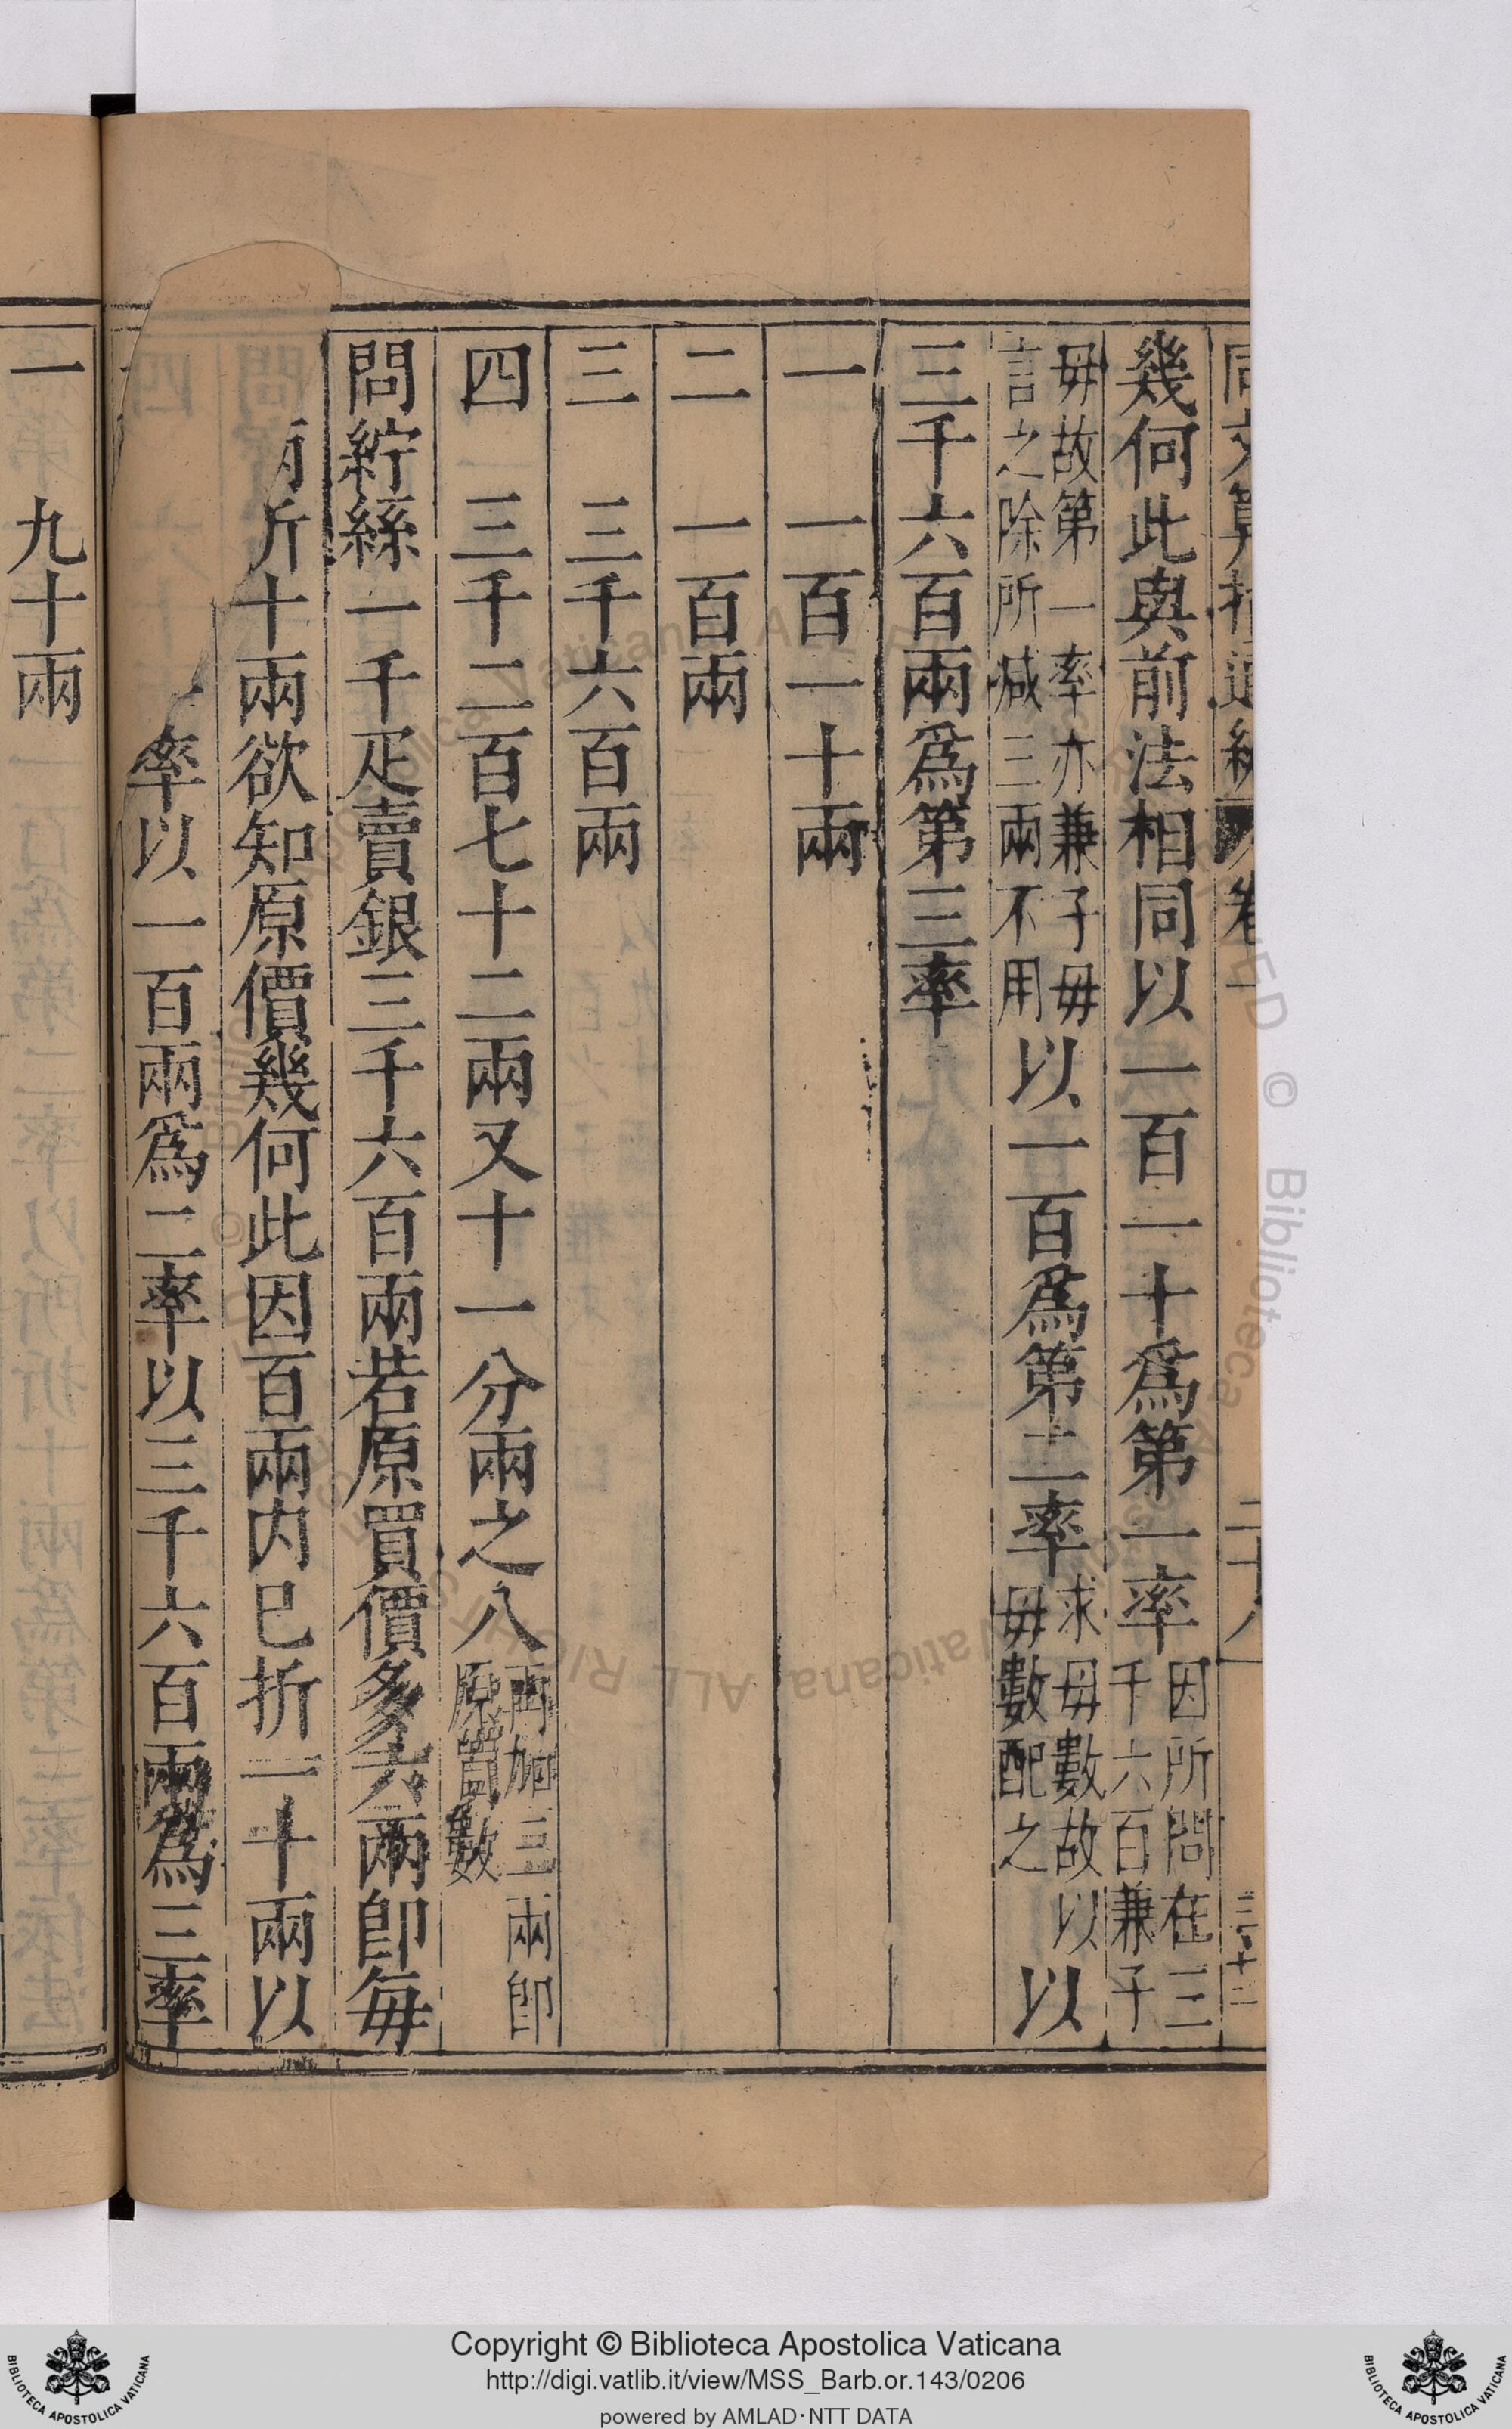 同文算指通編 卷一 二十八 三十二
幾何此與前法相同以一百一十爲第一率因所問在三千六百兼子
毋故第一率亦兼子毋言之除所減三兩不用以一百爲第二率求毋數故以毋數配之以
三千六百兩爲第三率
一 一百一十兩
二 一百兩
三 三千六百兩
四 三千二百七十二兩又十一分兩之八再加三兩卽原買數
問紵絲一千疋賣銀三千六百兩若原買價多六兩卽每
兩折十兩欲知原價幾何此因百兩内已折一十兩以
率以一百兩爲二率以三千六百兩爲三率
一 九十兩
Copyright © Biblioteca Apostolica Vaticana
http://digi.vatlib.it/view/MSS_Barb.or.143/0206
powered by AMLAD·NTT DATA
BIBLIOTECA APOSTOLICA VATICANA
BIBLIOTECA APOSTOLICA VATICANA